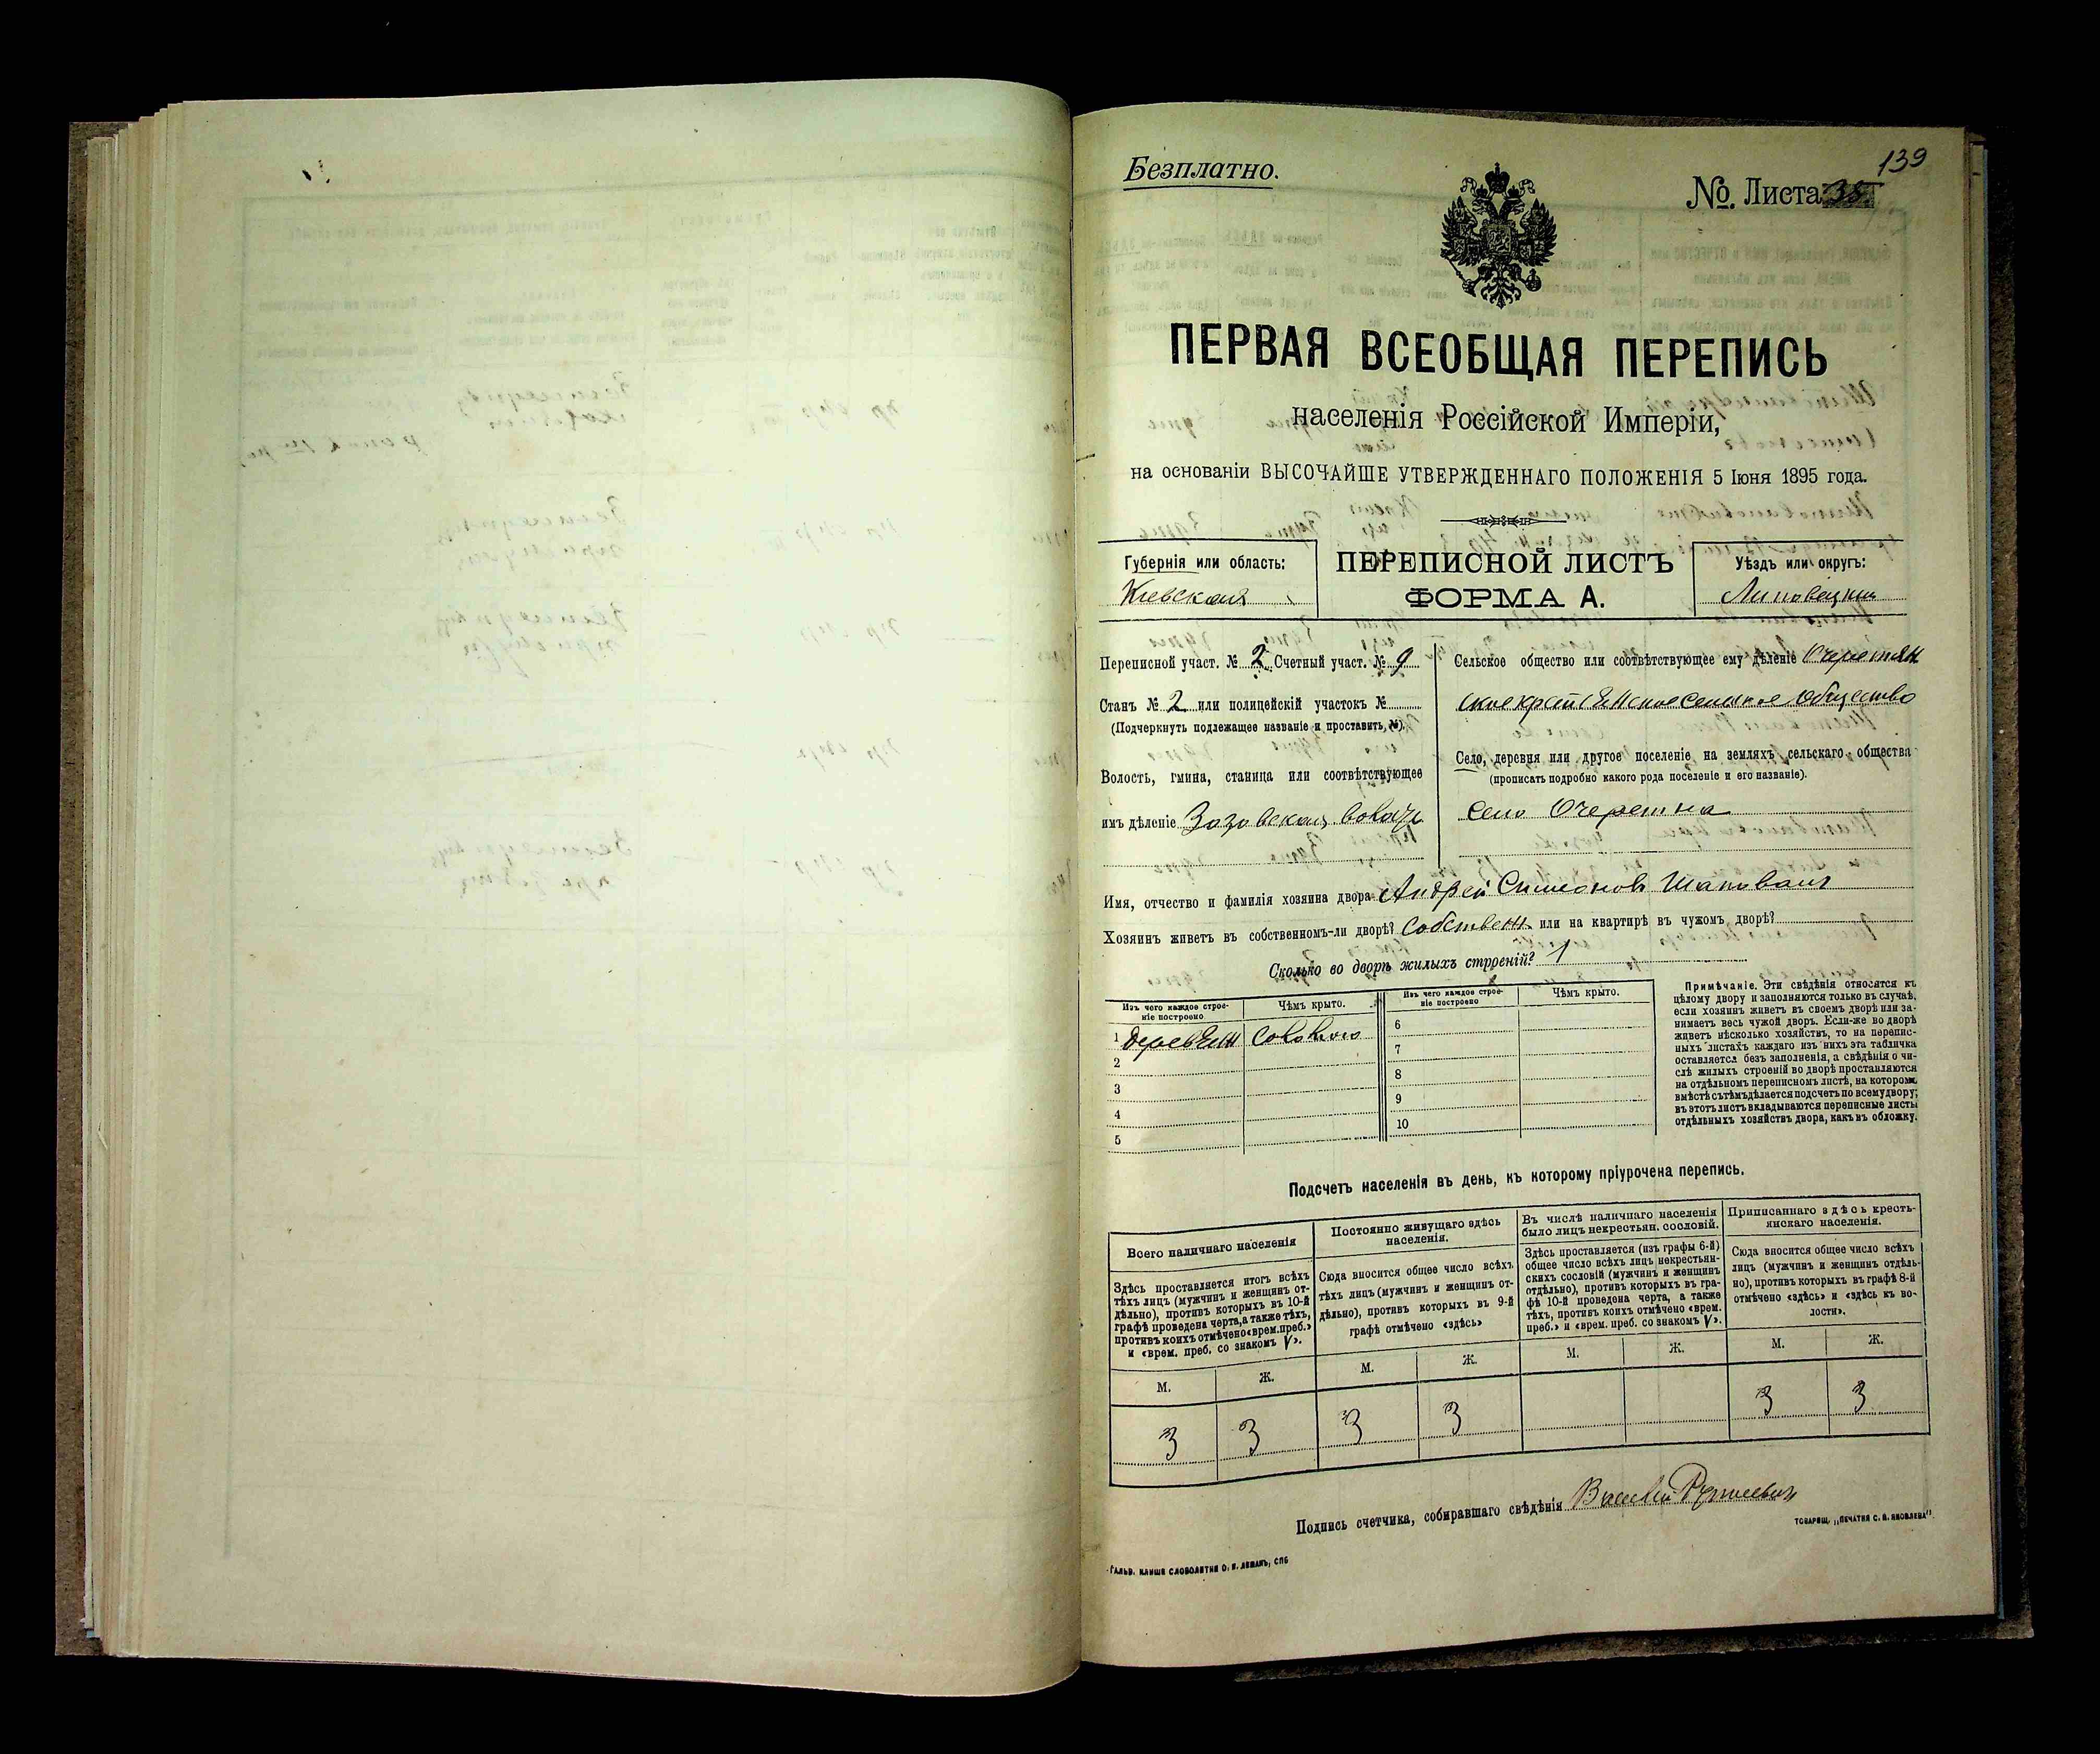 139
Безплатно.
No. Листа 38
ПЕРВАЯ ВСЕОБЩАЯ ПЕРЕПИСЬ
населенія Россійской Имперіи,
на основаніи ВЫСОЧАЙШЕ УТВЕРЖДЕННАГО ПОЛОЖЕНІЯ 5 Іюня 1895 года.
Губернія или область:
Кіевская
ПЕРЕПИСНОЙ ЛИСТЪ
ФОРМА А.
Уѣздъ или округъ:
Липовецкій
Переписной участ. № 2 Счетный участ. № 9
Станъ № 2 или полицейскій участокъ №
(Подчеркнуть подлежащее названіе и проставить №).
Волость, гмина, станица или соотвѣтствующее
имъ дѣленіе Зозовская волость
Сельское общество или соотвѣтствующее ему дѣленіе Очеретян
ское крестьянское сельское общество
Село, деревня или другое поселеніе на земляхъ сельскаго общества
(прописать подробно какого рода поселеніе и его названіе).
село Очеретна
Имя, отчество и фамилія хозяина двора Андрей Симеоновъ Шаповалъ
Хозяинъ живетъ въ собственномъ-ли дворѣ? Собствен. или на квартирѣ въ чужомъ дворѣ?
Сколько во дворѣ жилыхъ строеній? 1
Изъ чего каждое строе-
ніе построено
Чѣмъ крыто.
Изъ чего каждое строе-
ніе построено
Чѣмъ крыто.
1 деревян соломою
2
3
4
5
6
7
8
9
10
Примѣчаніе. Эти свѣдѣнія относятся къ
цѣлому двору и заполняются только въ случаѣ,
если хозяинъ живетъ въ своемъ дворѣ или за-
нимаетъ весь чужой дворъ. Если-же во дворѣ
живетъ нѣсколько хозяйствъ, то на перепис-
ныхъ листахъ каждаго изъ нихъ эта табличка
оставляется безъ заполненія, а свѣдѣнія о чи-
слѣ жилыхъ строеній во дворѣ проставляются
на отдѣльномъ переписномъ листѣ, на которомъ
вмѣстѣ съ тѣмъ дѣлается подсчетъ по всему двору;
въ этотъ листъ вкладываются переписные листы
отдѣльныхъ хозяйствъ двора, какъ въ обложку.
Подсчетъ населенія въ день, къ которому пріурочена перепись.
Всего наличнаго населенія
Здѣсь проставляется итогъ всѣхъ
тѣхъ лицъ (мужчинъ и женщинъ от-
дѣльно), противъ которыхъ въ 10-й
графѣ проведена черта, а также тѣхъ,
противъ коихъ отмѣчено «врем. преб.»
и «врем. преб. со знакомъ V».
Постоянно живущаго здѣсь
населенія.
Сюда вносится общее число всѣхъ
тѣхъ лицъ (мужчинъ и женщинъ от-
дѣльно), противъ которыхъ въ 9-й
графѣ отмѣчено «здѣсь»
Въ числѣ наличнаго населенія
было лицъ некрестьян. сословій.
Здѣсь проставляется (изъ графы 6-й)
общее число всѣхъ лицъ некрестьян-
скихъ сословій (мужчинъ и женщинъ
отдѣльно), противъ которыхъ въ гра-
фѣ 10-й проведена черта, а также
тѣхъ, противъ коихъ отмѣчено «врем.
преб.» и «врем. преб. со знакомъ V».
Приписаннаго здѣсь кресть-
янскаго населенія.
Сюда вносится общее число всѣхъ
лицъ (мужчинъ и женщинъ отдѣль-
но), противъ которыхъ въ графѣ 8-й
отмѣчено «здѣсь» и «здѣсь къ во-
лости».
М. Ж. М. Ж. М. Ж. М. Ж.
3 3 3 3 3 3
Подпись счетчика, собиравшаго свѣдѣнія Василій
ТОВАРИЩ. „ПЕЧАТНЯ С. П. ЯКОВЛЕВА".
ГАЛЬВ. КЛИШЕ СЛОВОЛИТНИ О. И. ЛЕМАНЪ, СПБ